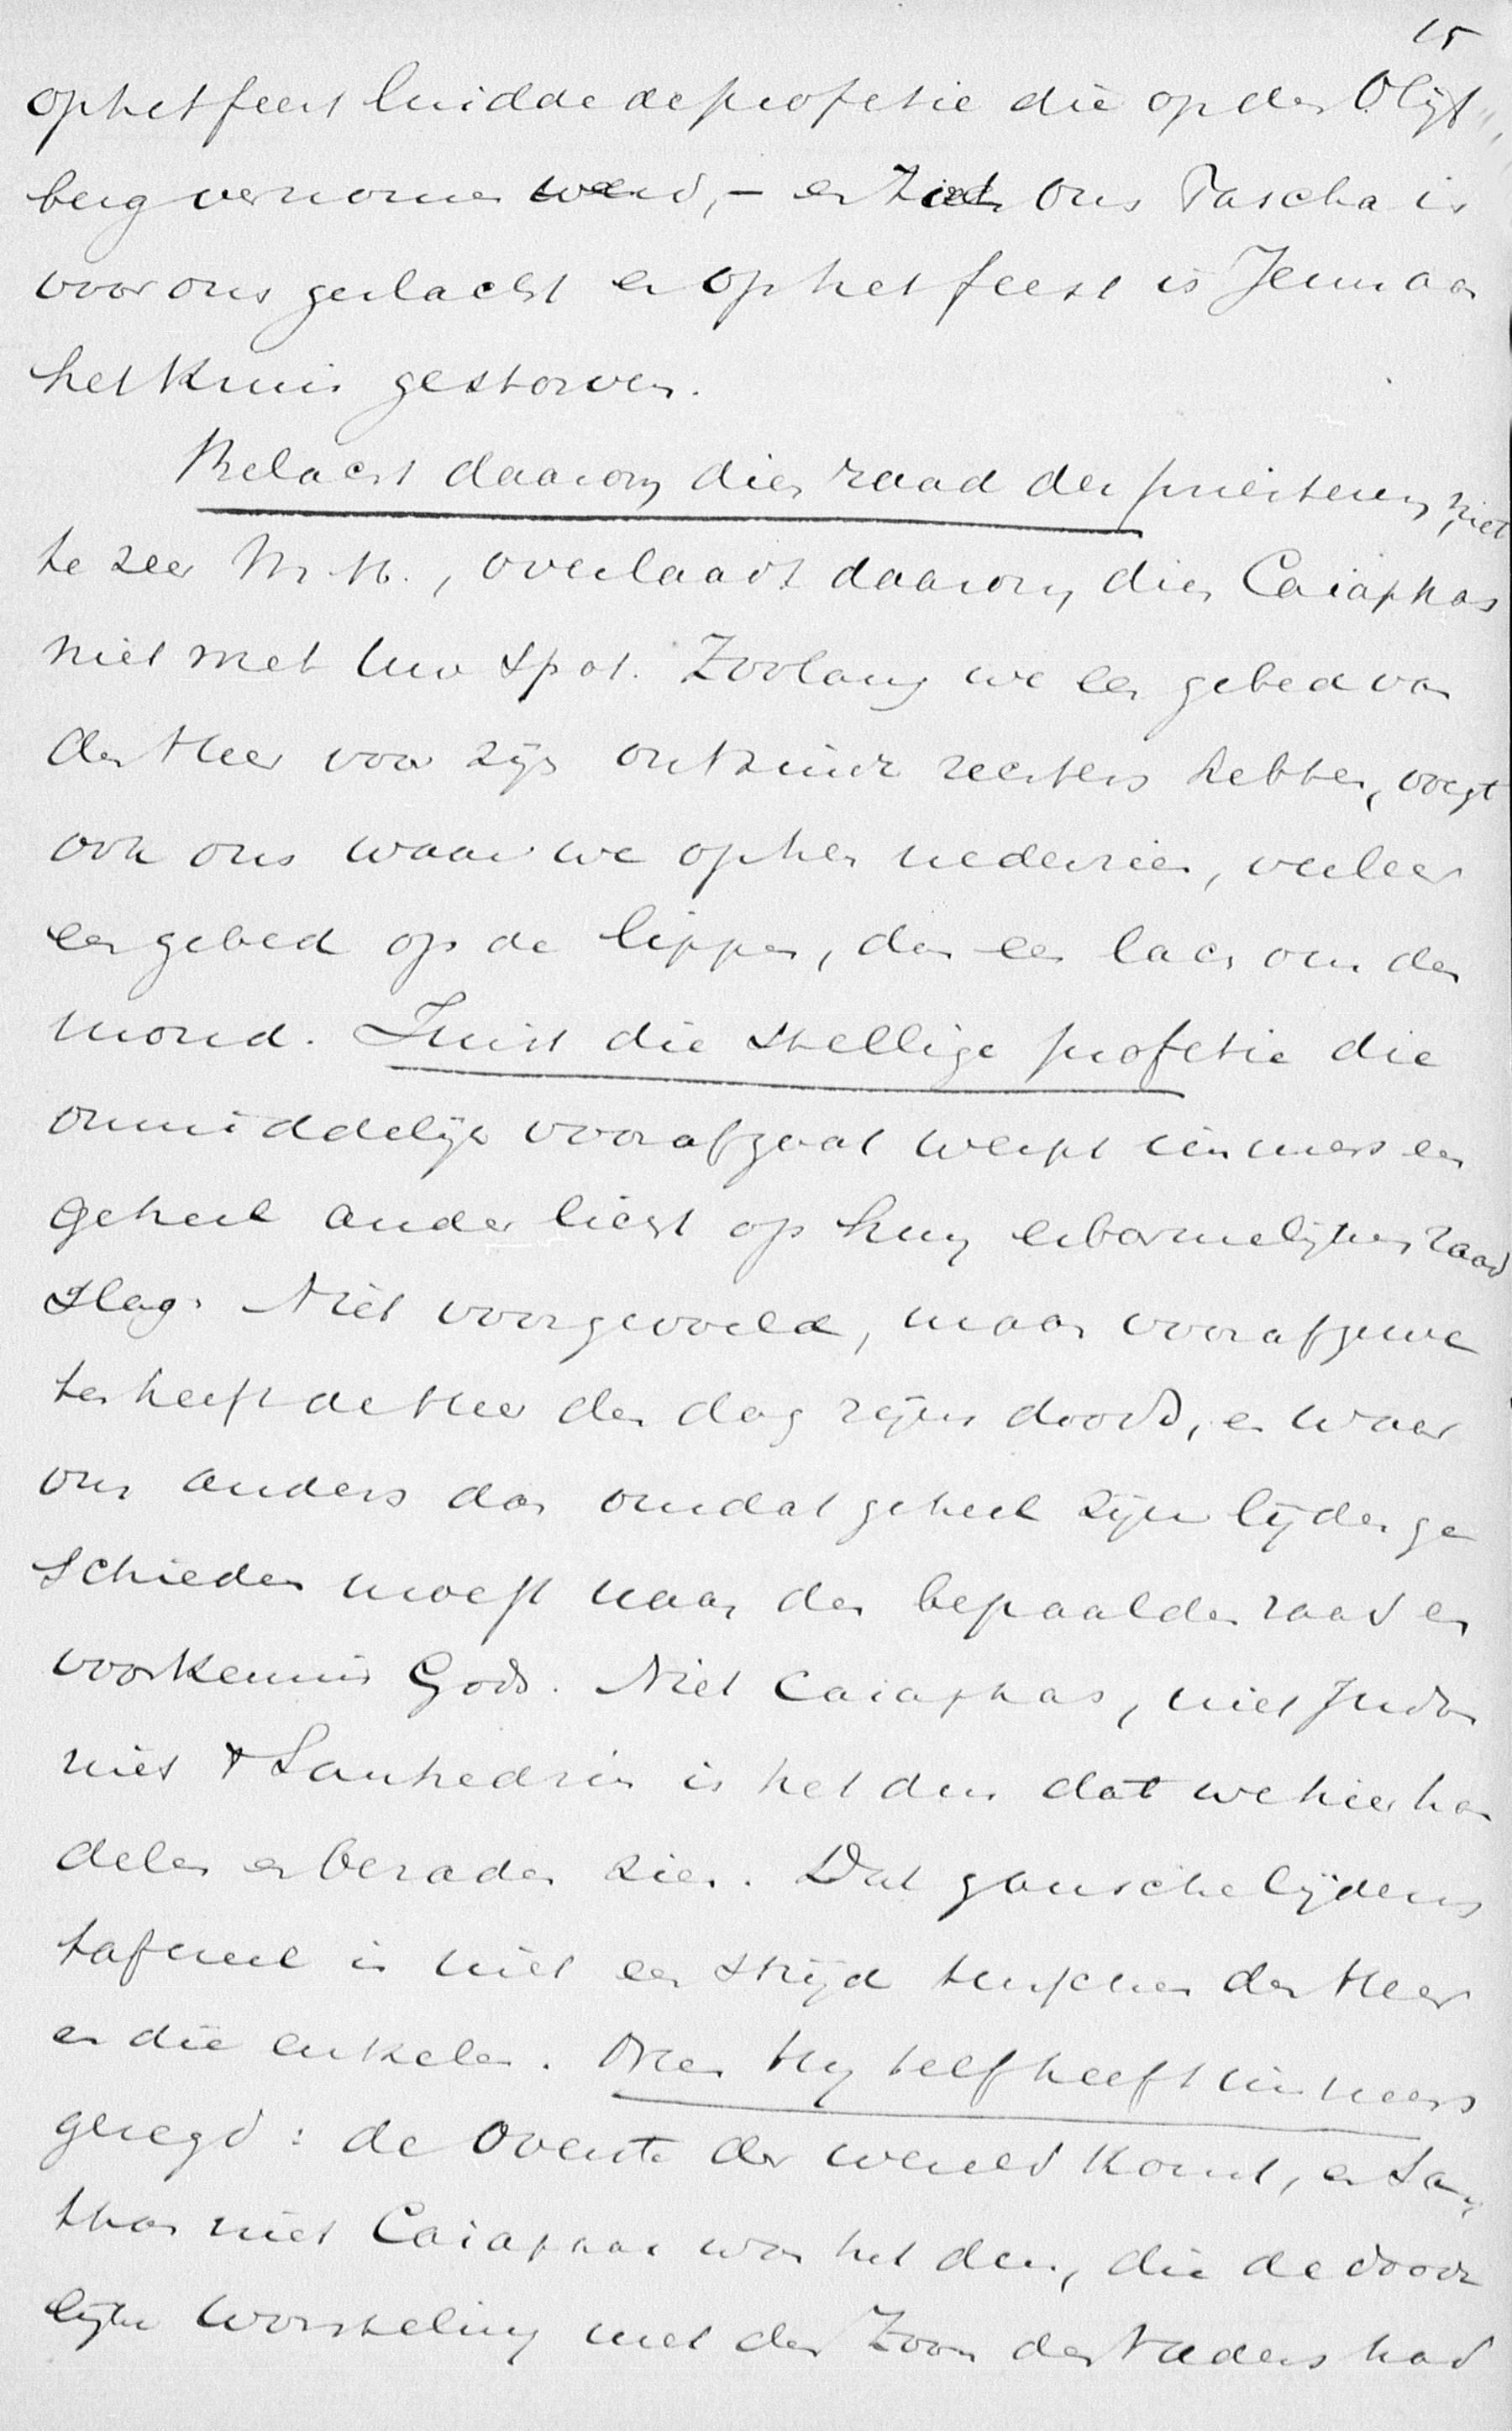 15
op het feest luidde de profetie die op den Olijf„
berg vernomen werd, – en ziet ons Pascha is
voor ons geslacht en op het feest is Jezus aan
het kruis gestorven.
Belacht daarom dien raad der priesteren niet
te zeer M. H., overlaadt daarom dien Caiaphas
niet met uw spot. Zoolang we een gebed van
den Heer voor zijn ontzinde rechters hebben, voegt
ook ons waar we op hen nederzien, veeleer
een gebed op de lippen, dan een lach om den
mond. Juist die stellige profetie die
onmiddelijk voorafgaat werpt immers een
geheel ander licht op hun erbarmelijken raad
slag. Niet voorgevoeld, maar voorafgewe
ten heeft de Heer den dag zijns doods, en waar
om anders dan omdat geheel zijn lijden ge
schieden moest naar den bepaalden raad en
voorkennis Gods. Niet Caiaphas, niet Judas
niet 't Sanhedrin is het dus dat we hier han
delen en beraden zien. Dat gansche lijdens
tafereel is niet een strijd tusschen den Heer
en die enkelen. Neen Hij zelf heeft immers
gezegd: de Overste der wereld komt, en Sa„
than niet Caiaphas was het dus, die de doode
lijke worsteling met den Zoon des Vaders had